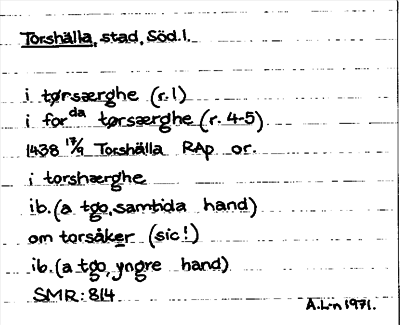 Torshälla, stad, Söd. l.
i tørsærghe (r. 1)
i for da tørsærghe (r. 4-5)
1438 17/9 Torshälla RAp or.
i torshærghe
ib. (a tgo, samtida hand)
om torsåker (sic!)
ib. (a tgo, yngre hand)
SMR: 814
A.L-n 1971.